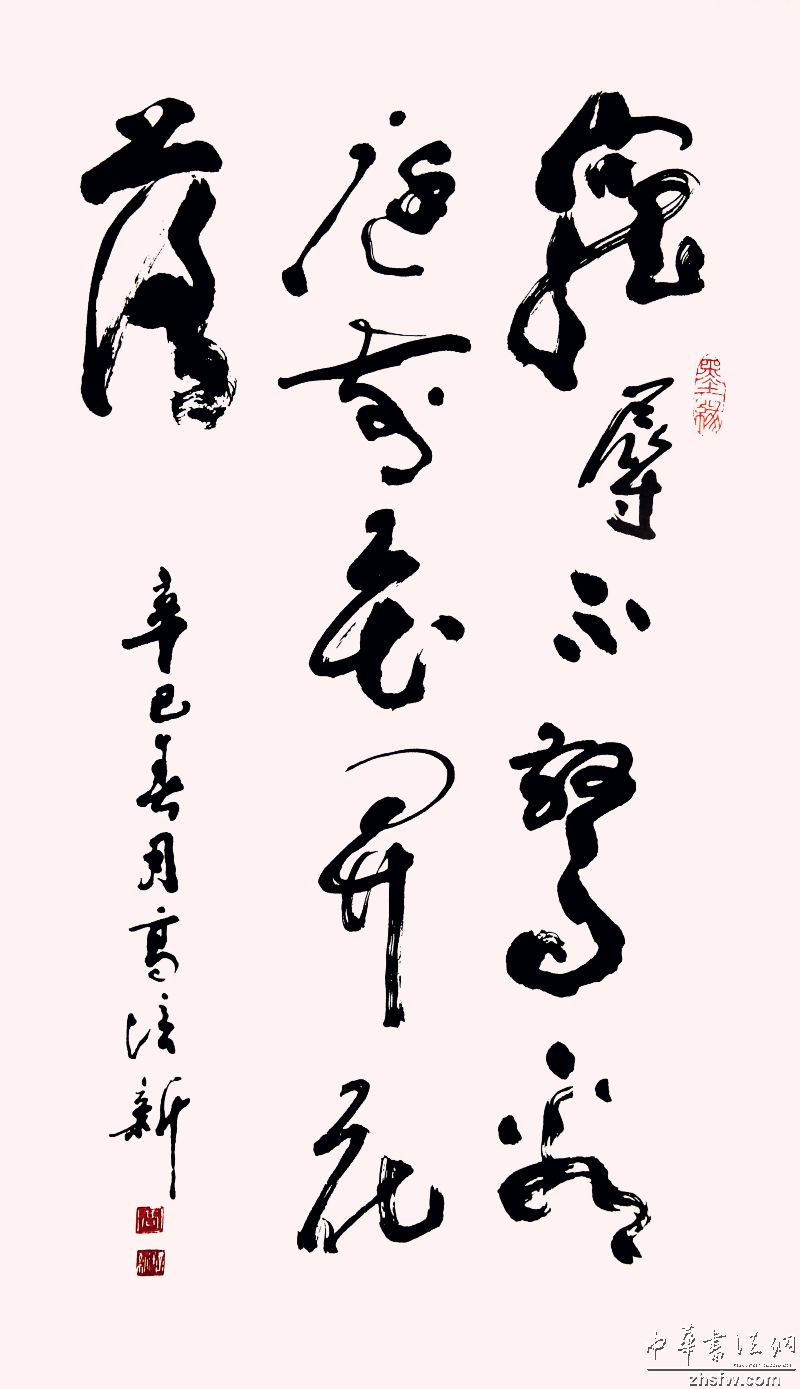 宠辱不惊看
庭前花开花
落
辛巳春月高培新
墨缘
中华书法网
zhsfw.com